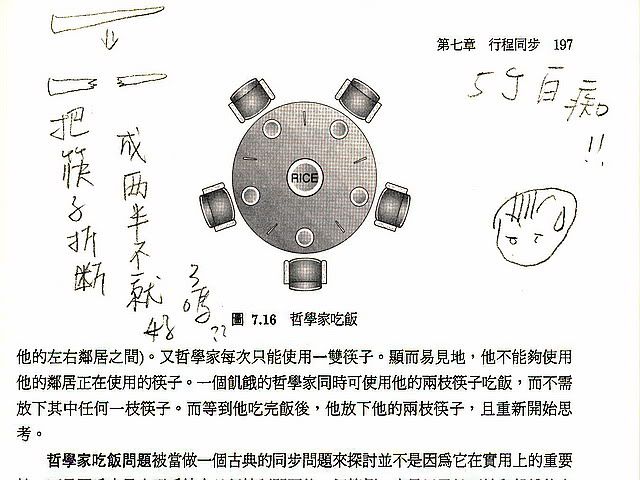 第七章 行程同步 197
5个白痴
!!
把筷子折断
成两半不就
好了吗??
RICE
圖 7.16 哲學家吃飯
他的左右鄰居之間)。又哲學家每次只能使用一雙筷子。顯而易見地,他不能夠使用
他的鄰居正在使用的筷子。一個飢餓的哲學家同時可使用他的兩枝筷子吃飯,而不需
放下其中任何一枝筷子。而等到他吃完飯後,他放下他的兩枝筷子,且重新開始思
考。
哲學家吃飯問題被當做一個古典的同步問題來探討並不是因爲它在實用上的重要